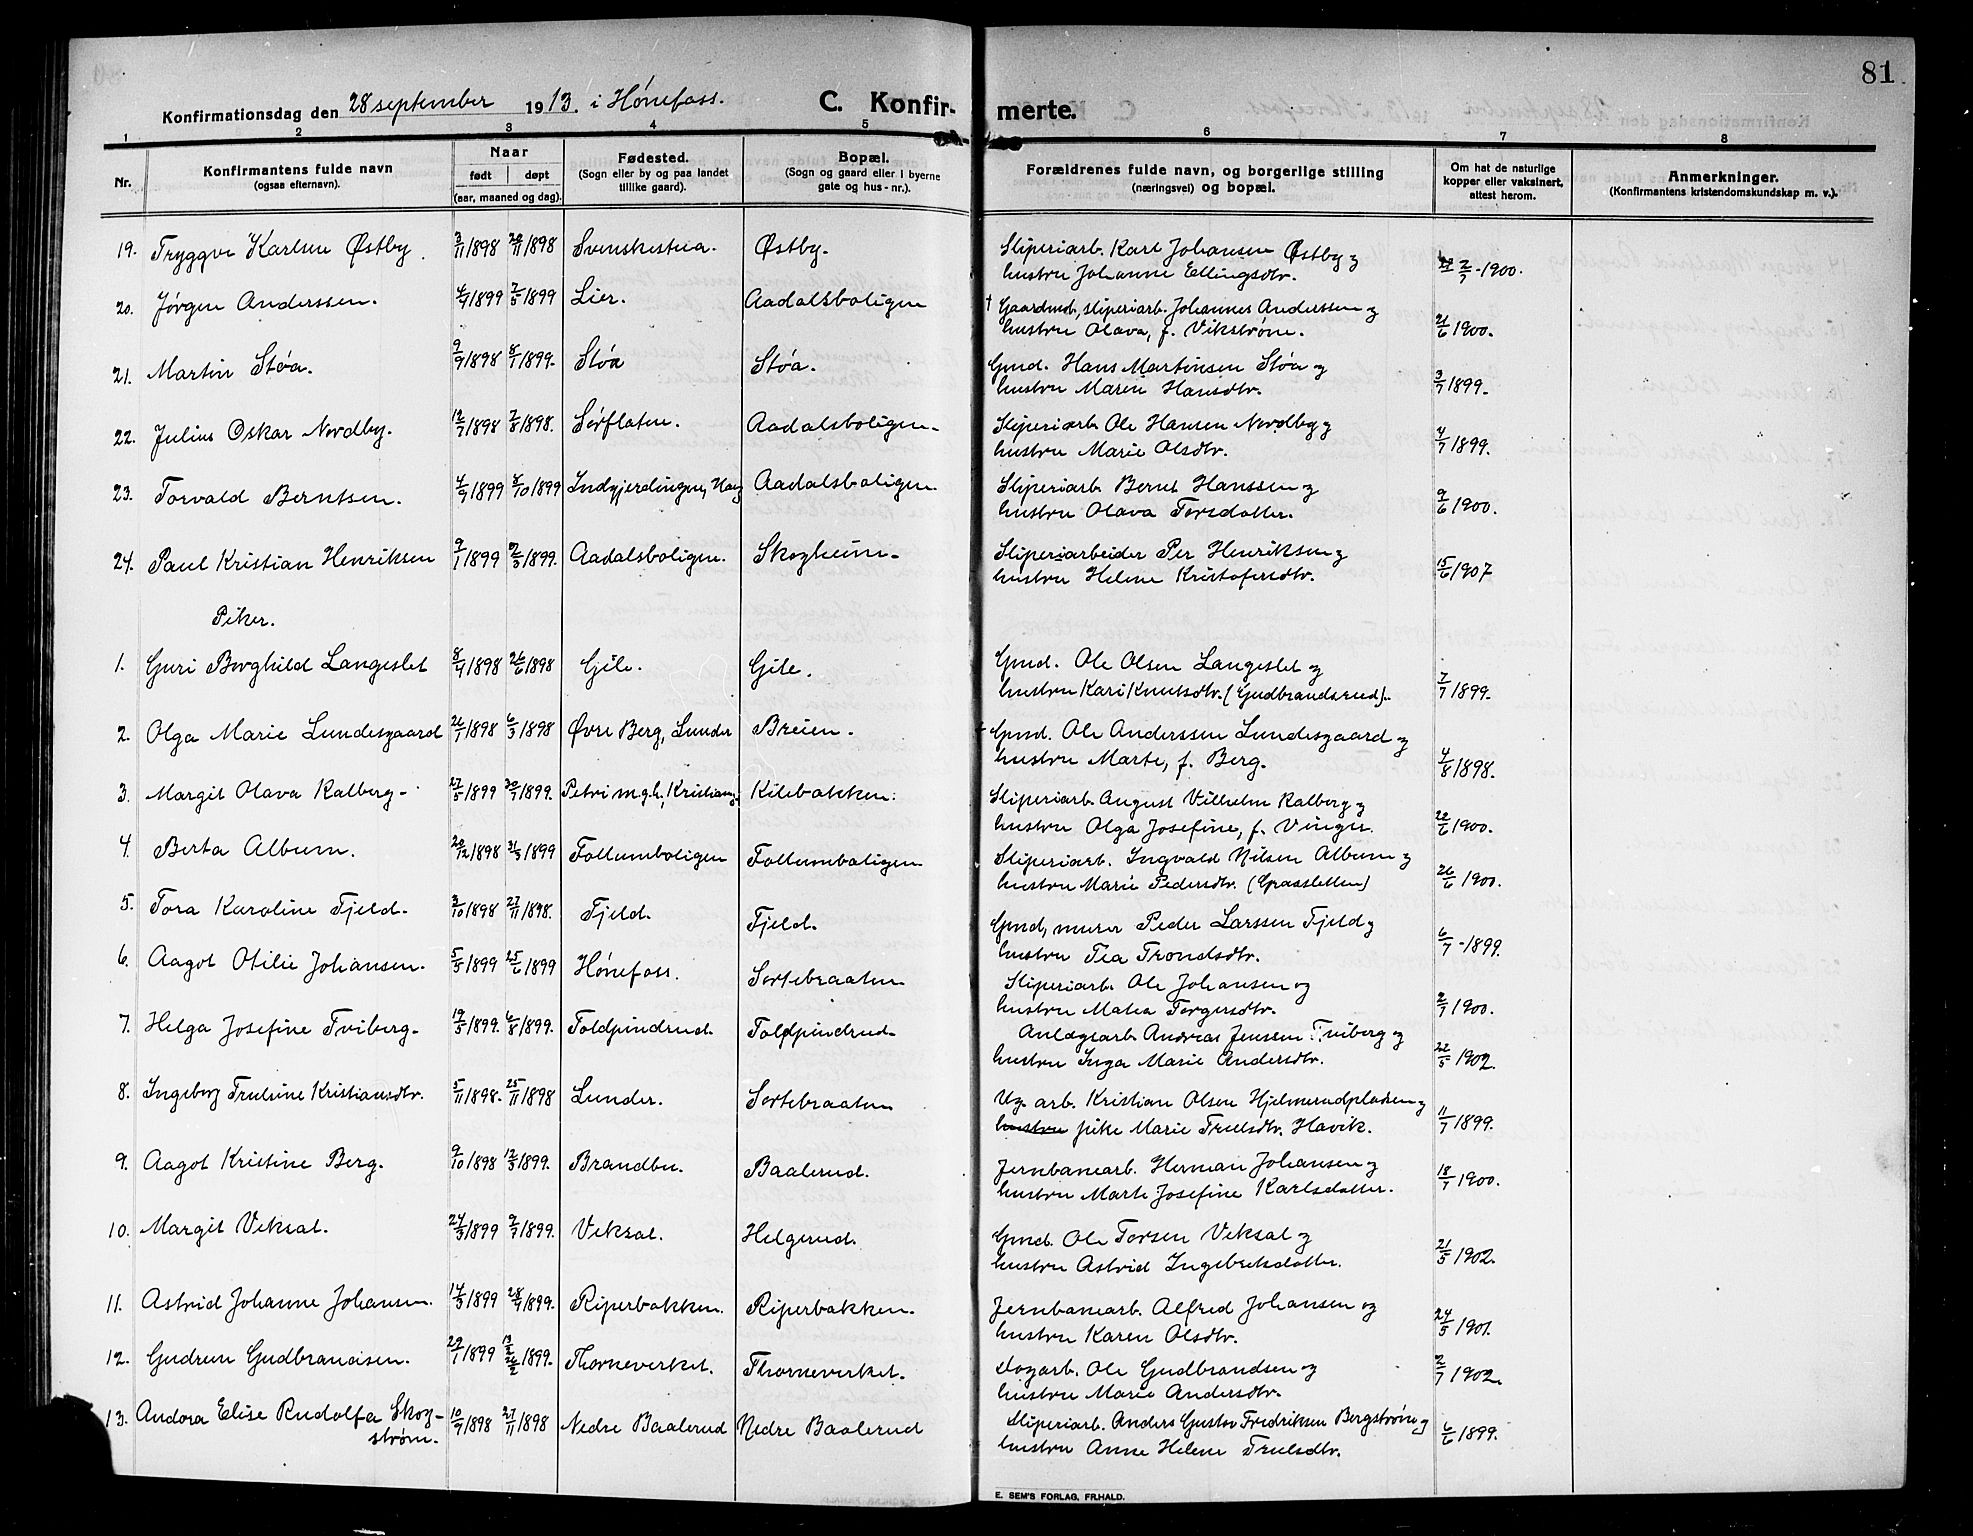 81
Konfirmationsdag den 28 september 1913. i Hønefoss. C. Konfir- merte.
1 2 3 4 5 6 7 8
Nr. Konfirmantens fulde navn (ogsaa efternavn). Naar født døpt (aar, maaned og dag). Fødested. (Sogn eller by og paa landet tillike gaard). Bopæl. (Sogn og gaard eller i byerne gate og hus-nr.). Forældrenes fulde navn, og borgerlige stilling (næringsvei) og bopæl. Om hat de naturlige kopper eller vaksinert, attest herom. Anmerkninger. (Konfirmantens kristendomskundskap m. v.).
19. Tryggve Karlsen Østby. 3/11 1898 20/11 1898 Svenskestua. Østby. Sliperiarb. Karl Johansen Østby og
hustru Johanne Ellingsdtr. 2/7-1900.
20. Jørgen Anderssen. 4/4 1899 7/5 1899 Lier. Aadalsboligen † Gaardmd., sliperiarb. Johannes Anderssen og
hustru Olava, f. Vikstrøm. 21/6 1900.
21. Martin Støa. 9/9 1898 8/1 1899. Støa Støa. Gmd. Hans Martinsen Støa og
hustru Maren Hansdtr. 3/7 1899.
22. Julius Oskar Nordby. 12/7 1898 7/8 1898. Sørflaten. Aadalsboligen. Sliperiarb. Ole Hansen Nordby og
hustru Marie Olsdtr. 4/7 1899.
23. Torvald Berntsen. 4/9 1899 8/10 1899 Indgjerdingen, Haug Aadalsboligen. Sliperiarb. Bernt Hanssen og
hustru Olava Torsdatter. 9/6 1900.
24. Paul Kristian Henriksen 9/1 1899 12/3 1899. Aadalsboligen. Skogheim. Sliperiarbeider Per Henriksen og
hustru Helene Kristofersdtr. 15/6 1907
Piker.
1. Guri Borghild Langeslet 8/4 1898 26/6 1898 Gjile. Gile. Gmd. Ole Olsen Langeslet og
hustru Kari Knutsdtr. (Gudbrandsrud). 7/7 1899.
2. Olga Marie Lundesgaard 26/1 1898 6/3 1898 Øvre Berg, Lunder Breien. Gmd. Ole Anderssen Lundesgaard og
hustru Marte, f. Berg. 4/8 1898.
3. Margit Olava Kalberg. 27/5 1899 30/7 1899. Petri mgh., Kristiania Kilebakken. Sliperiarb. August Vilhelm Kalberg og
hustru Olga Josefine, f. Vinger. 20/6 1900.
4. Berta Album. 20/12 1898 31/3 1899 Follumboligen Follumboligen Sliperiarb. Ingvald Nilsen Album og
hustru Marie Pedersdtr. (Grassletten) 26/6 1900.
5. Tora Karoline Fjeld. 3/10 1898 27/11 1898. Fjeld. Fjeld. Gmd, murer Peder Larssen Fjeld og
hustru Tea Trondsdtr. 6/7-1899.
6. Aagot Otilie Johansen. 5/5 1899 25/6 1899 Hønefoss. Sortebraaten. Sliperiarb. Ole Johansen og
hustru Matea Torgersdtr. 2/7 1900.
7. Helga Josefine Tviberg. 19/5 1899. 6/8 1899. Toldpindrud. Toldpindrud. Anlægsarb. Andreas Jensen Tviberg og
hustru Inga Marie Andersdtr. 22/5 1902.
8. Ingeborg Trulsine Kristiansdtr. 5/11 1898. 25/11 1898 Lunder. Sortebraaten Ug. arb. Kristian Olsen Hjelmerudpladsen og
hustru pike Marie Trulsdtr. Havik. 11/7 1899.
9. Aagot Kristine Berg. 9/10 1898 12/3 1899. Brandbu. Baalerud. Jernbanearb. Herman Johansen og
hustru Marte Josefine Karlsdatter. 18/7 1900.
10. Margit Veksal. 24/3 1899 9/7 1899. Veksal. Helgerud. Gmd. Ole Torsen Veksal og
hustru Astrid Ingebretsdatter. 21/5 1902.
11. Astrid Johanne Johansen. 14/3 1899 28/4 1899. Riperbakken. Riperbakken. Jernbanearb. Alfred Johansen og
hustru Karen Olsdtr. 24/5 1901.
12. Gudrun Gudbrandsen. 29/1 1899 1899. Thorneverket. Thorneverket. Dagarb. Ole Gudbrandsen og
hustru Marie Andersdtr. 2/7 1902.
13. Andora Elise Rudolfa Skog- 10/9 1898 27/11 1898 Nedre Baalerud Nedre Baalerud Sliperiarb. Anders Gustav Fredriksen Bergstrøm og
strøm. hustru Anne Helene Trulsdtr. 6/6 1899.
E. SEM'S FORLAG, FR.HALD.